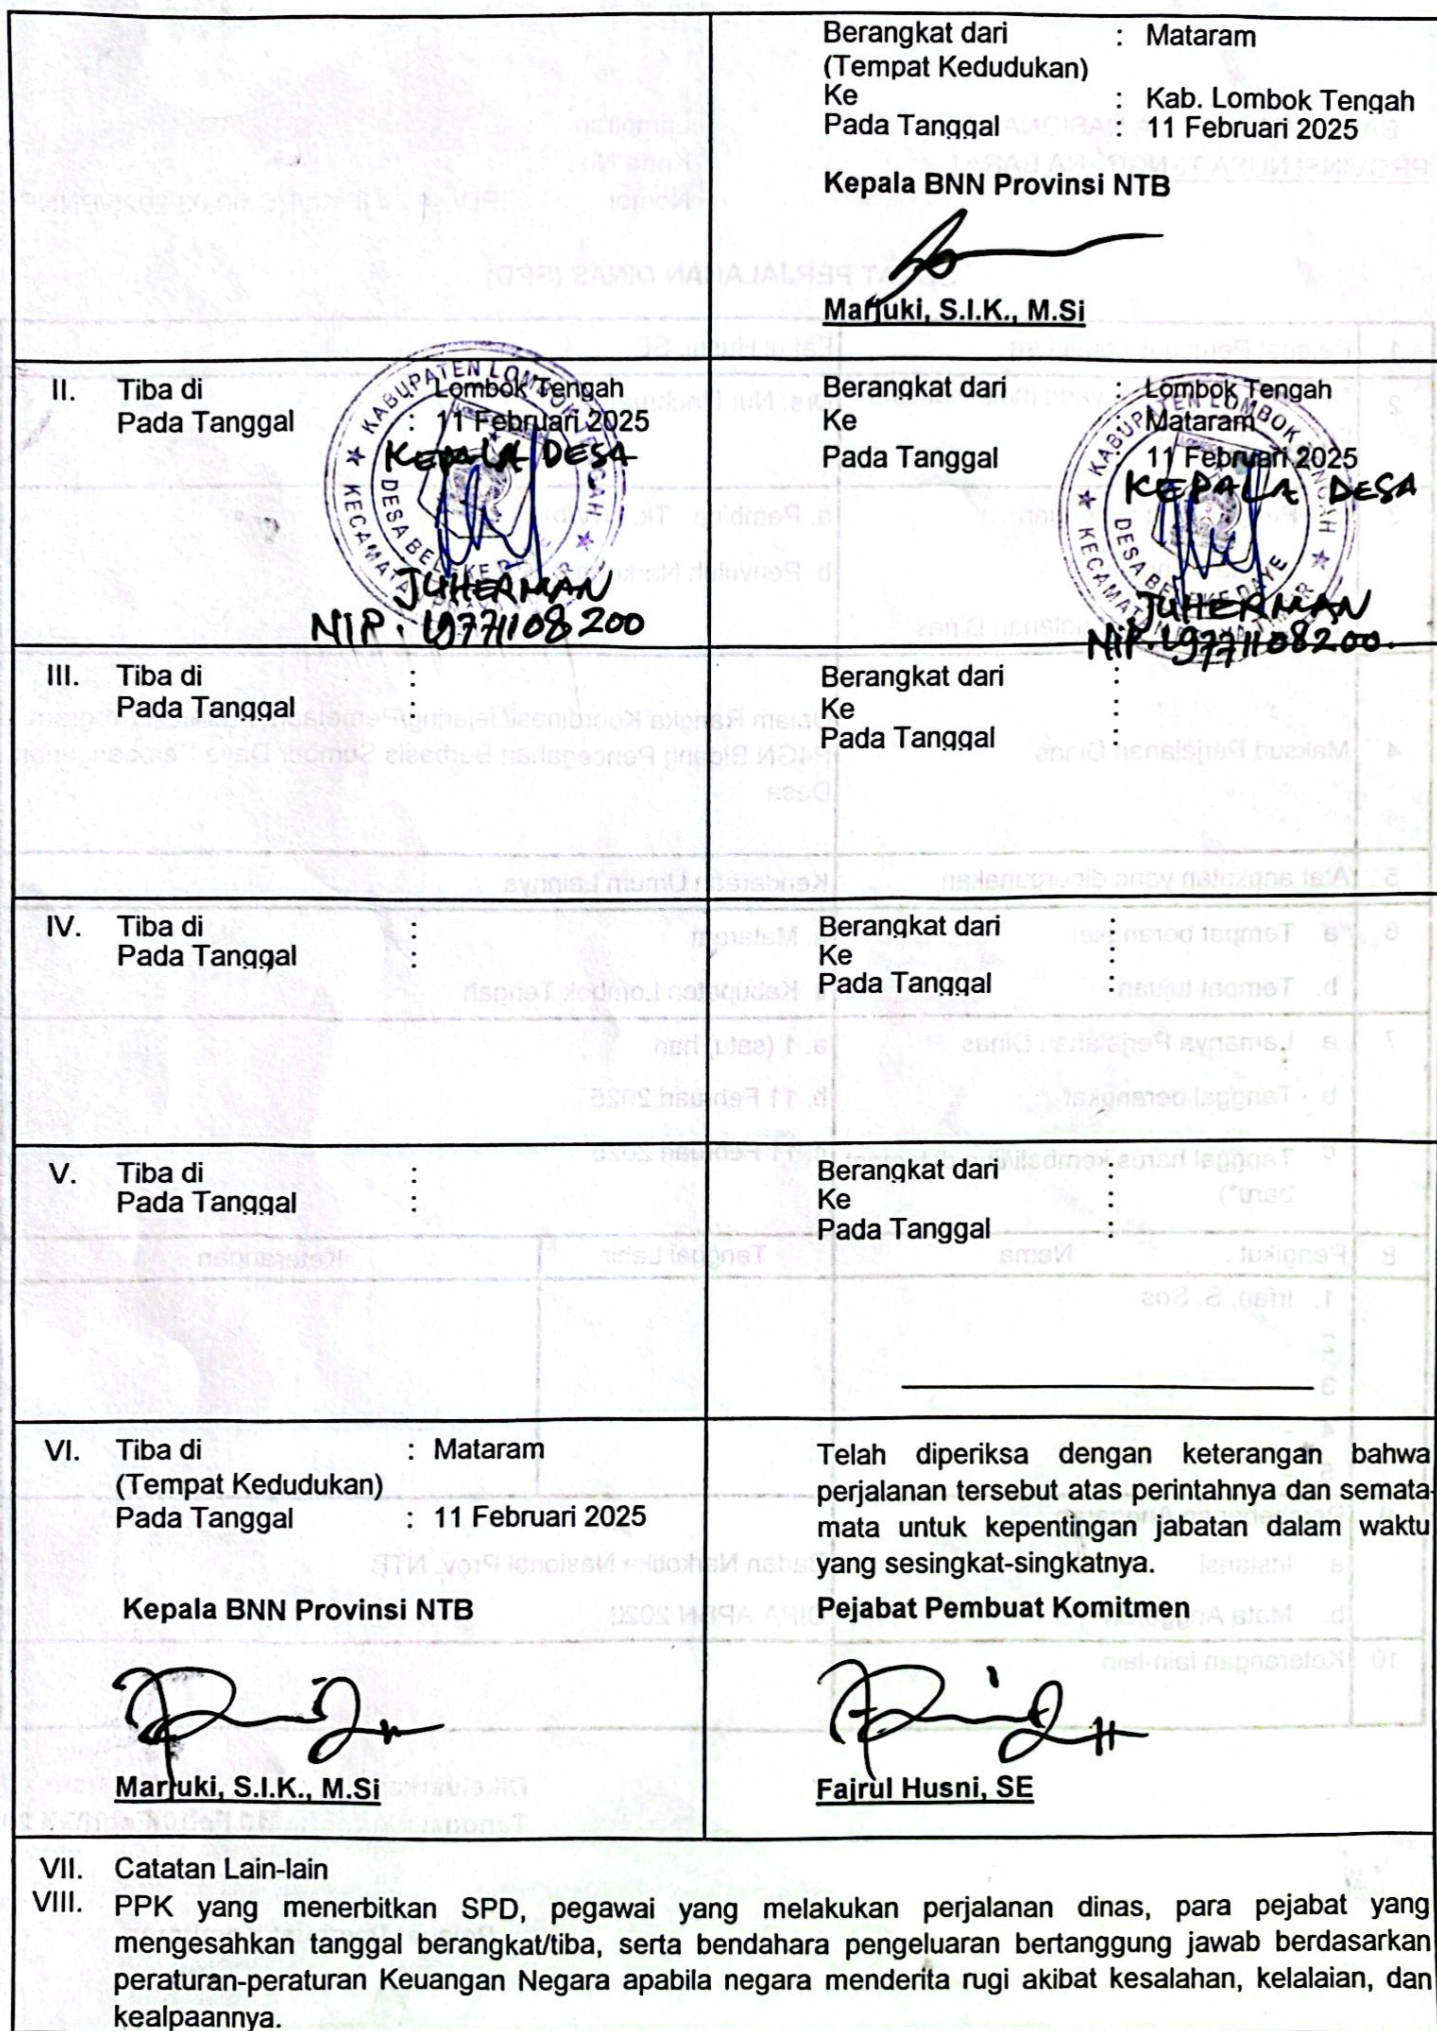 Berangkat dari : Mataram
(Tempat Kedudukan)
Ke : Kab. Lombok Tengah
Pada Tanggal : 11 Februari 2025
Kepala BNN Provinsi NTB
Marjuki, S.I.K., M.Si
II. Tiba di : Lombok Tengah
Pada Tanggal : 11 Februari 2025
KEPALA DESA
KABUPATEN LOMBOK TENGAH
JUHERMAN
NIP : 19771108 200
Berangkat dari : Lombok Tengah
Ke : Mataram
Pada Tanggal : 11 Februari 2025
KEPALA DESA
KABUPATEN LOMBOK TENGAH
DESA BELEKE DAYE
JUHERMAN
NIP. 19771108200.
III. Tiba di :
Pada Tanggal :
Berangkat dari :
Ke :
Pada Tanggal :
IV. Tiba di :
Pada Tanggal :
Berangkat dari :
Ke :
Pada Tanggal :
V. Tiba di :
Pada Tanggal :
Berangkat dari :
Ke :
Pada Tanggal :
VI. Tiba di : Mataram
(Tempat Kedudukan)
Pada Tanggal : 11 Februari 2025
Kepala BNN Provinsi NTB
Marjuki, S.I.K., M.Si
Telah diperiksa dengan keterangan bahwa
perjalanan tersebut atas perintahnya dan semata-
mata untuk kepentingan jabatan dalam waktu
yang sesingkat-singkatnya.
Pejabat Pembuat Komitmen
Fajrul Husni, SE
VII. Catatan Lain-lain
VIII. PPK yang menerbitkan SPD, pegawai yang melakukan perjalanan dinas, para pejabat yang
mengesahkan tanggal berangkat/tiba, serta bendahara pengeluaran bertanggung jawab berdasarkan
peraturan-peraturan Keuangan Negara apabila negara menderita rugi akibat kesalahan, kelalaian, dan
kealpaannya.